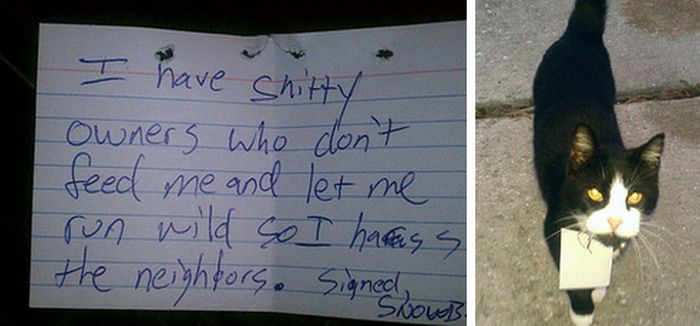 I have shitty
owners who don't
feed me and let me
run wild so I harass
the neighbors. Signed,
SNOWB